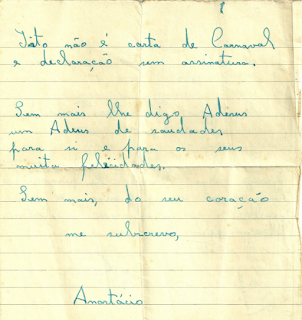 Isto não é carta de Carnaval
e declaração sem assinatura.
Sem mais lhe digo Adeus
um Adeus de saudades
para si e para os seus
muita felicidades.
Sem mais, do seu coração
me subscrevo,
Anastácio